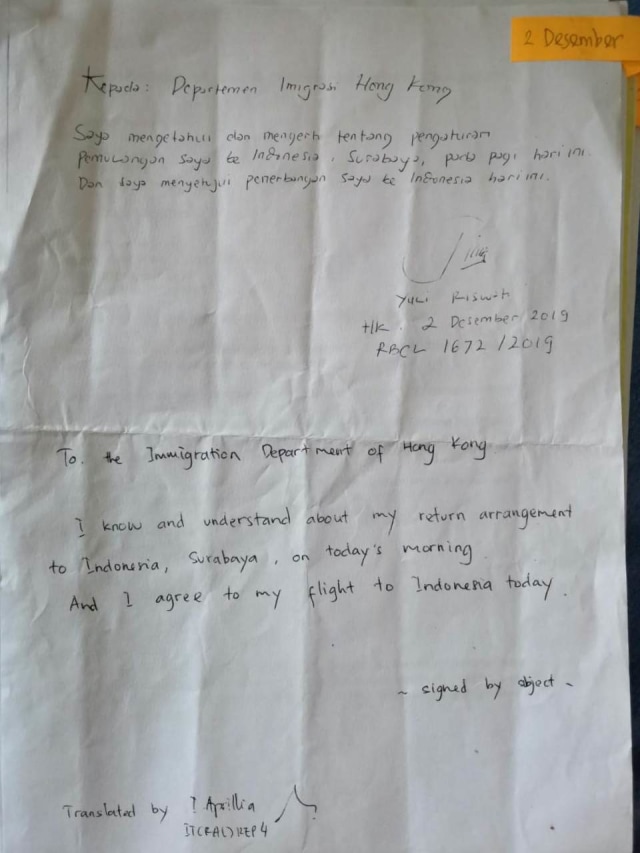 2 Desember
Kepada: Departemen Imigrasi Hong Kong
Saya mengetahui dan mengerti tentang pengaturan
Pemulangan saya ke Indonesia, Surabaya, pada pagi hari ini.
Dan saya menyetujui penerbangan saya ke Indonesia hari ini.
Yuli Riswati
HK. 2 Desember 2019
RBCL 1672/2019
To. the Immigration Department of Hong Kong
I know and understand about my return arrangement
to Indonesia, Surabaya, on today's morning.
And I agree to my flight to Indonesia today.
~ signed by object ~
Translated by I Aprillia